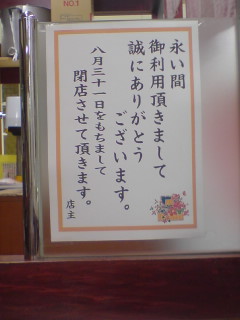 NO.1
永い間
御利用頂きまして
誠にありがとう
ございます。
八月三十一日をもちまして
閉店させて頂きます。
店主